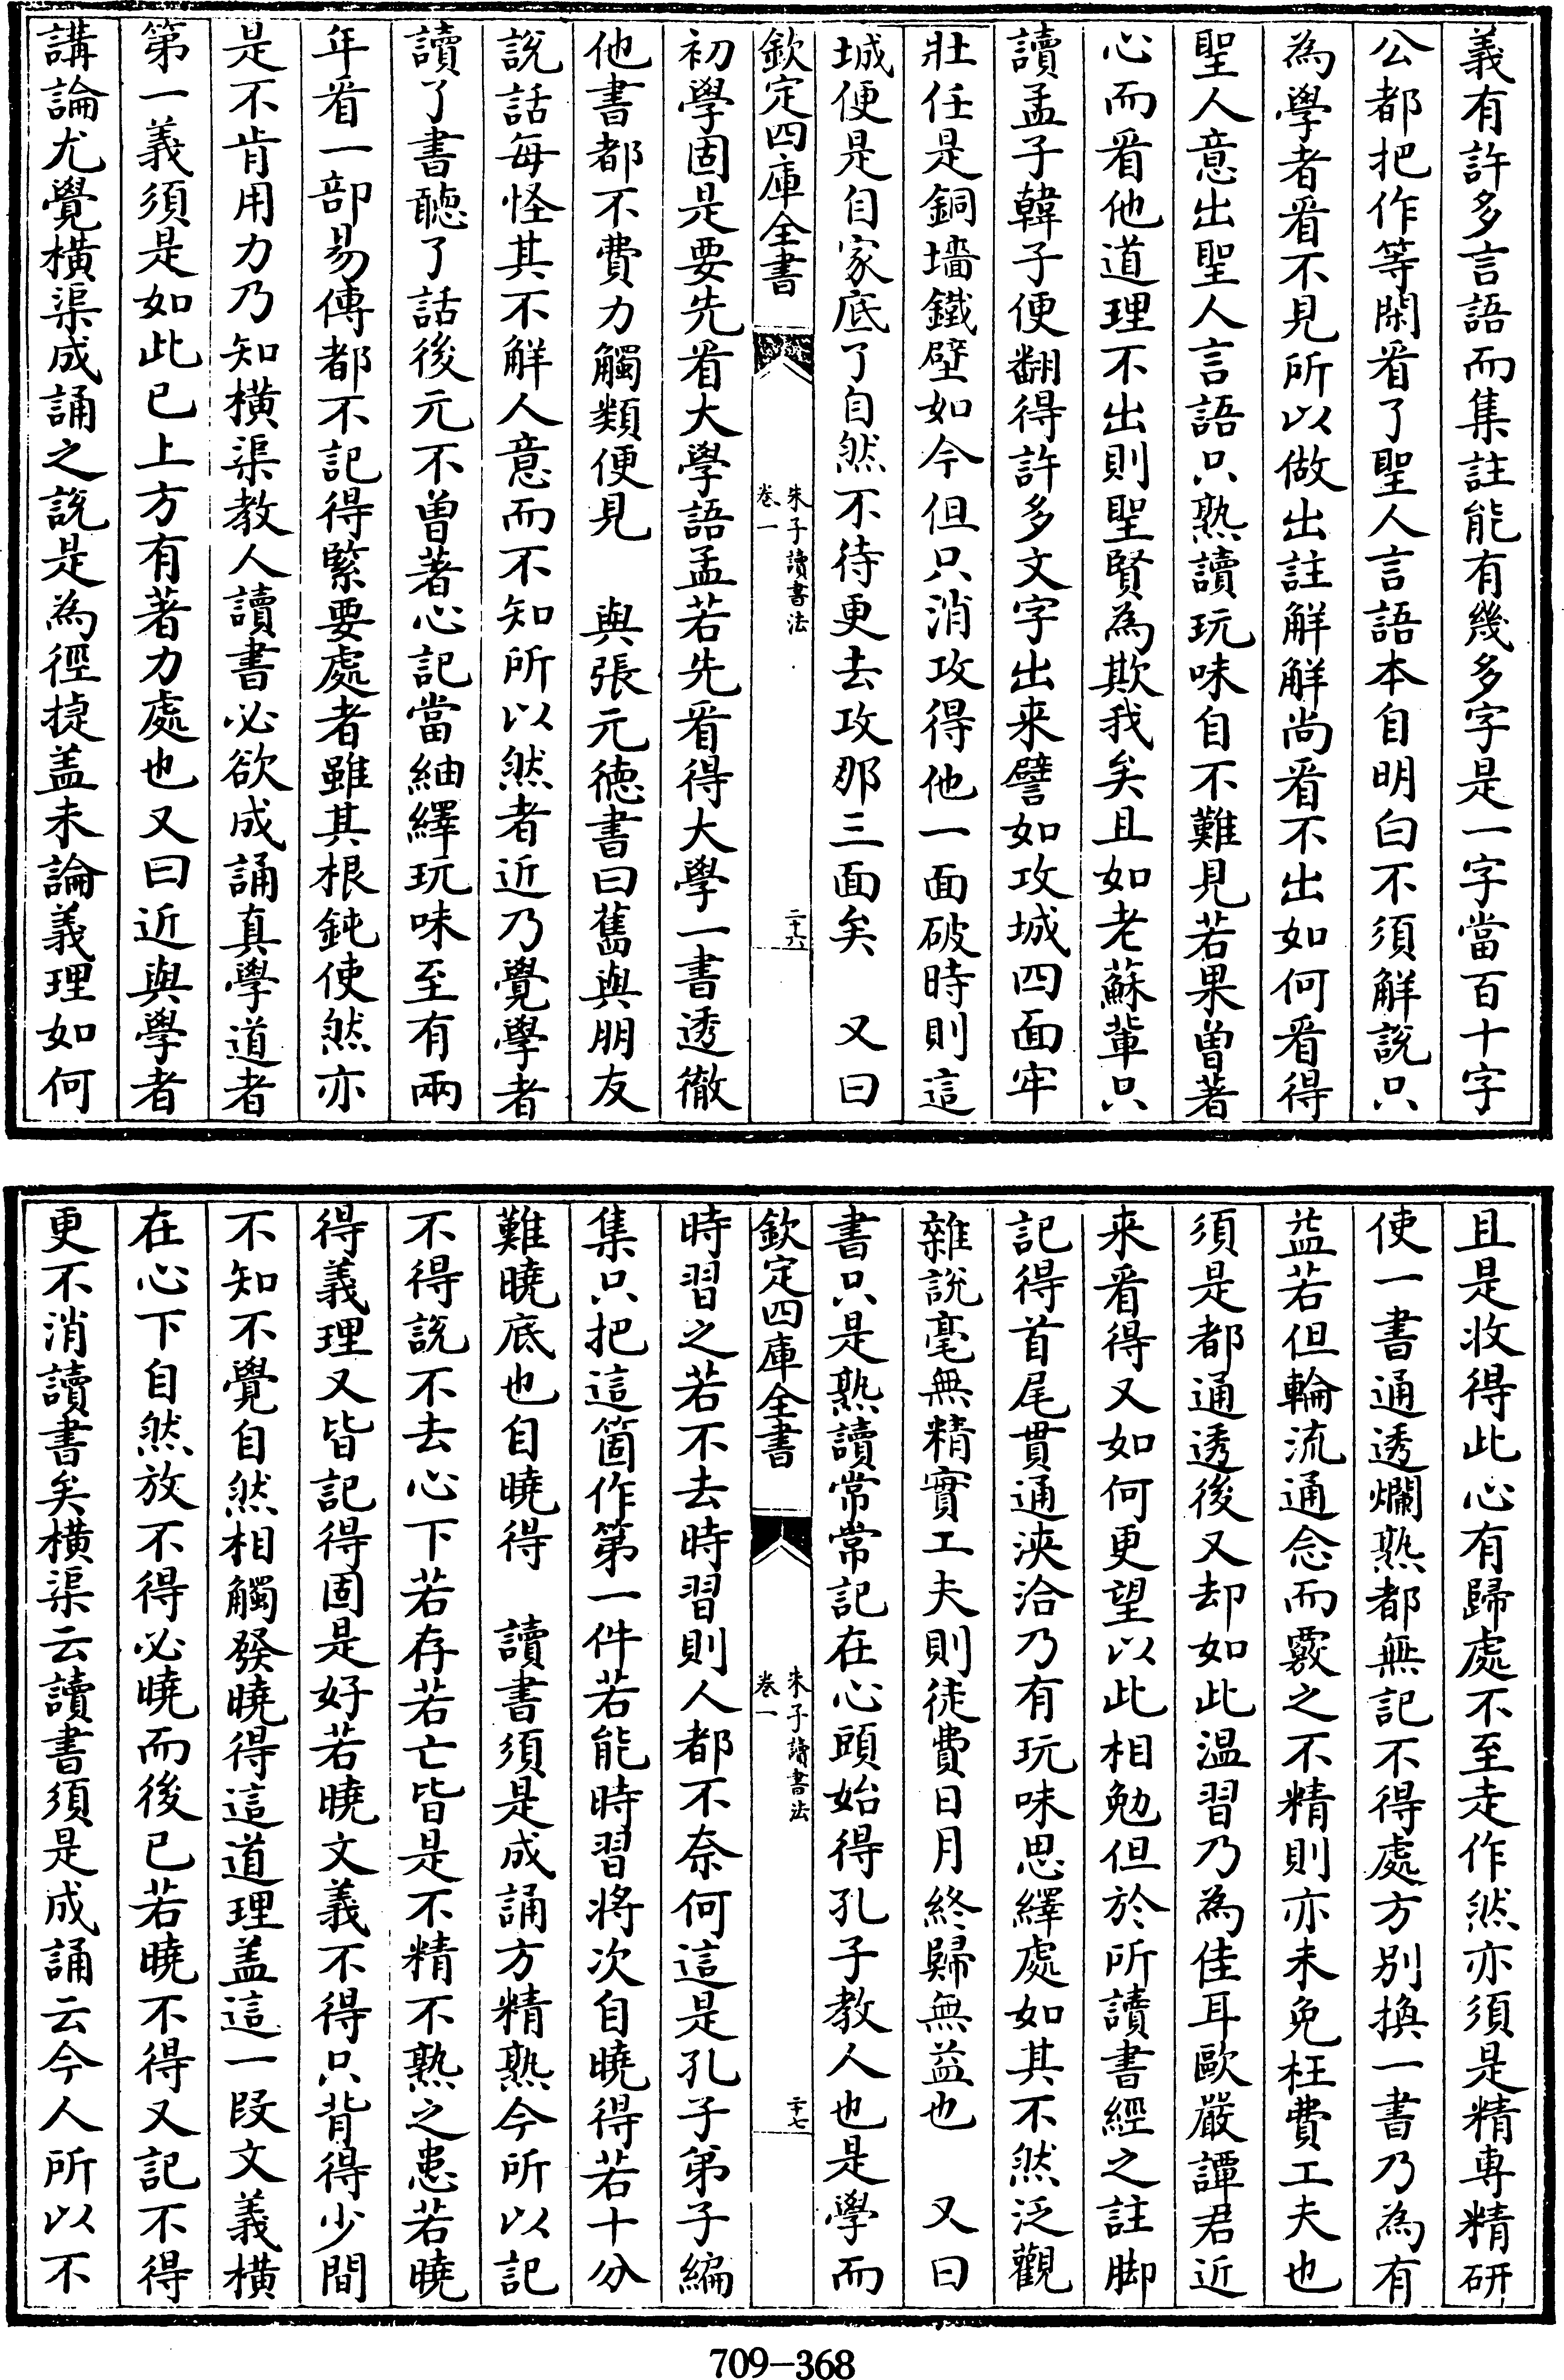 義有許多言語而集註能有幾多字是一字當百十字
公都把作等閑看了聖人言語本自明白不須解說只
為學者看不見所以做出註解解尚看不出如何看得
聖人意出聖人言語只熟讀玩味自不難見若果曽著
心而看他道理不出則聖賢為欺我矣且如老蘇輩只
讀孟子韓子便翻得許多文字出来譬如攻城四面牢
壯任是銅墻鐵壁如今但只消攻得他一面破時則這
城便是自家底了自然不待更去攻那三面矣　又曰
欽定四庫全書
朱子讀書法
卷一
二十六
初學固是要先看大學語孟若先看得大學一書透徹
他書都不費力觸類便見　與張元徳書曰舊與朋友
說話每怪其不解人意而不知所以然者近乃覺學者
讀了書聽了話後元不曽著心記當紬繹玩味至有兩
年看一部易傳都不記得緊要處者雖其根鈍使然亦
是不肯用力乃知横渠教人讀書必欲成誦真學道者
第一義須是如此已上方有著力處也又曰近與學者
講論尤覺橫渠成誦之說是為徑捷盖未論義理如何
且是收得此心有歸處不至走作然亦須是精專精研
使一書通透爛熟都無記不得處方别換一書乃為有
益若但輪流通念而覈之不精則亦未免枉費工夫也
須是都通透後又却如此温習乃為佳耳歐嚴譚君近
来看得又如何更望以此相勉但於所讀書經之註脚
記得首尾貫通浹洽乃有玩味思繹處如其不然泛觀
雜說毫無精實工夫則徒費日月終歸無益也　又曰
書只是熟讀常常記在心頭始得孔子教人也是學而
欽定四庫全書
朱子讀書法
卷一
二十七
時習之若不去時習則人都不奈何這是孔子弟子編
集只把這箇作第一件若能時習將次自曉得若十分
難曉底也自曉得　讀書須是成誦方精熟今所以記
不得說不去心下若存若亡皆是不精不熟之患若曉
得義理又皆記得固是好若曉文義不得只背得少間
不知不覺自然相觸發曉得這道理盖這一段文義橫
在心下自然放不得必曉而後已若曉不得又記不得
更不消讀書矣橫渠云讀書須是成誦云今人所以不
709-368